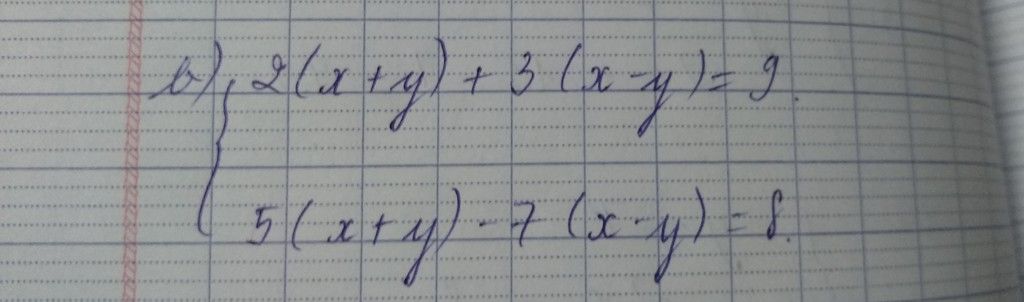 b) { 2(x+y) + 3(x-y) = 9.
5(x+y) - 7(x-y) = 8.